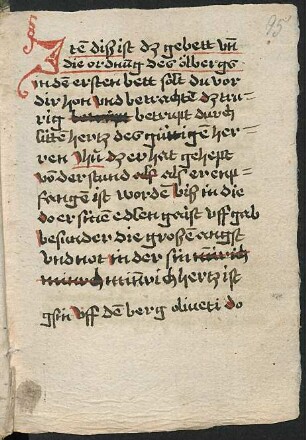 95
Itē diß ist dz gebett vñ
die ordnūg des ölbergs
in dē ersten bett solt du vor
dir hon vnd betrachtē dz tru⸗
rig betrüpt durch
litten hertz des gütige her⸗
ren dz er hat gehept
von der stund als er enpf⸗
fangē ist wordē biß in die
do er sinē edlen gaist vff gab
besunder die großē angst
vnd not in der sin
hertz ist
gsin vff dē berg oliueti do